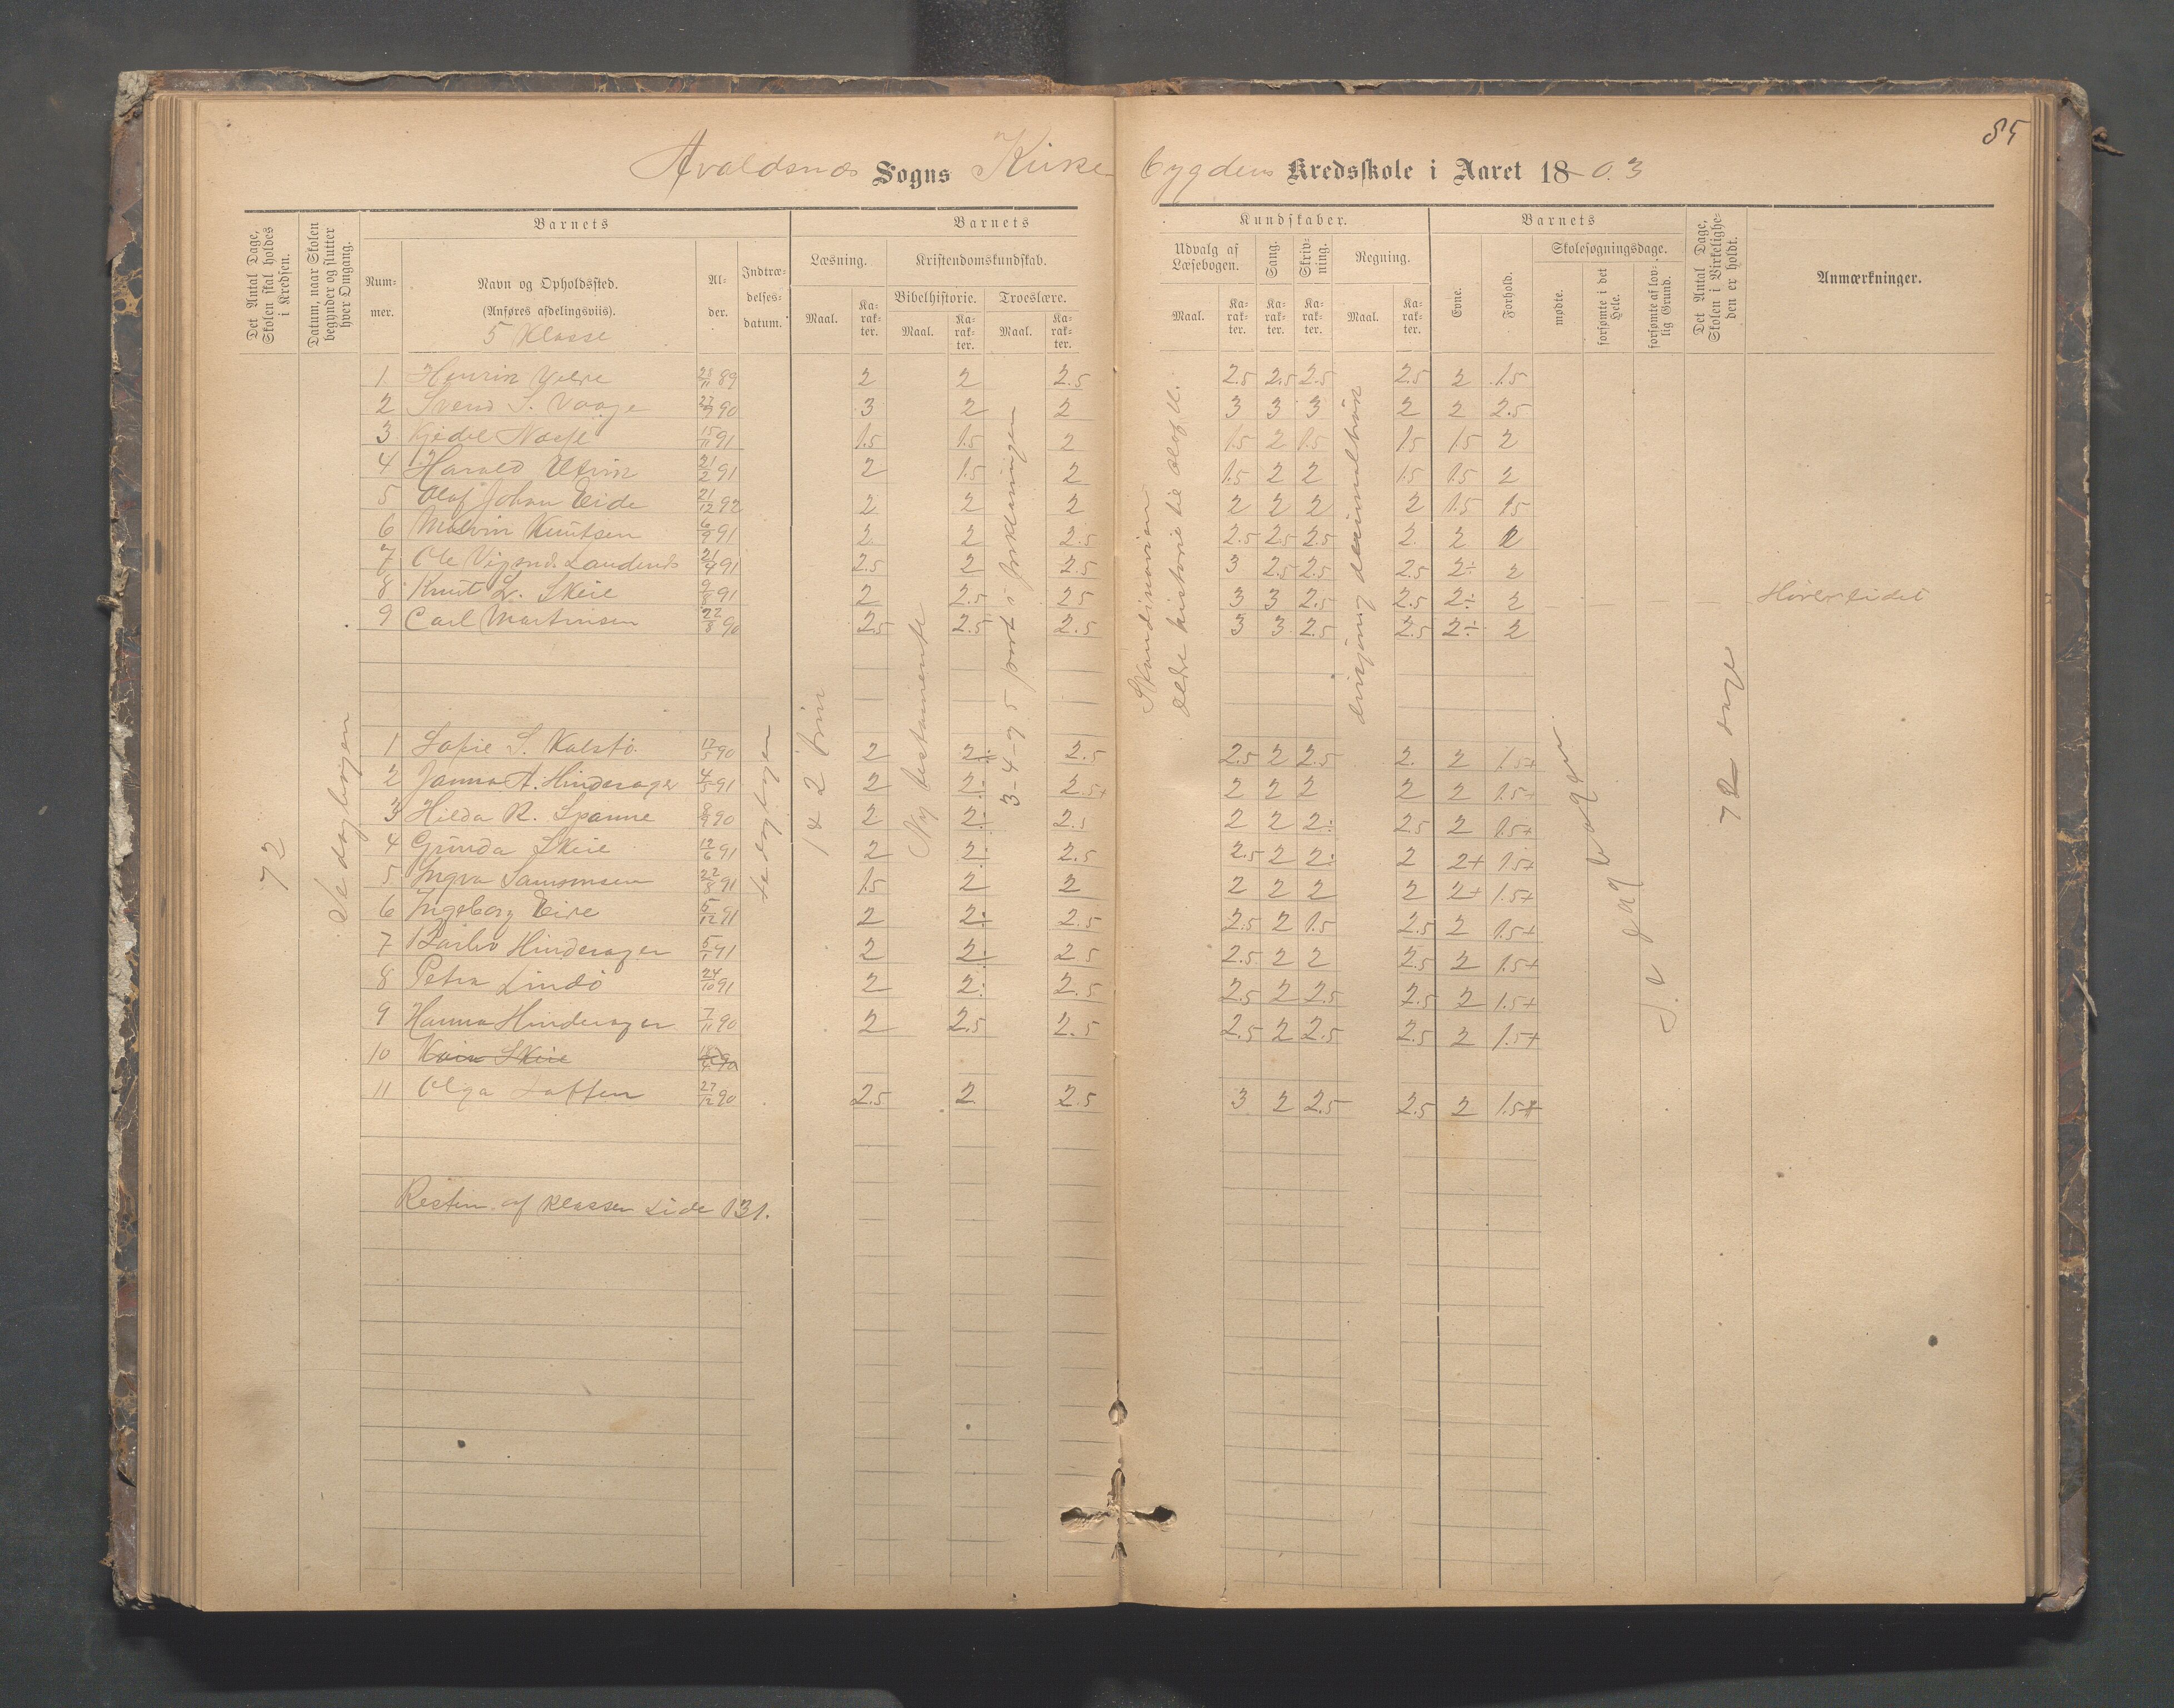 85
Avaldsnæs Sogns Kirke bygdens Kredsskole i Aaret 18 03
Det Antal Dage, Skolen skal holdes i Kredsen.
Datum, naar Skolen begynder og slutter hver Omgang.
Barnets
Nummer.
Navn og Opholdssted.
(Anføres afdelingsviis).
5 Klasse
Alder.
Indtrædelsesdatum.
Barnets
Læsning.
Maal.
Karakter.
Kristendomskundskab.
Bibelhistorie.
Maal.
Karakter.
Troeslære.
Maal.
Karakter.
Kundskaber.
Udvalg af Læsebogen.
Maal.
Karakter.
Sang.
Karakter.
Skrivning.
Karakter.
Regning.
Maal.
Karakter.
Barnets
Evne.
Forhold.
Skolesøgningsdage.
mødte.
forsømte i det Hele.
forsømte af lovlig Grund.
Det Antal Dage, Skolen i Virkeligheden er holdt.
Anmærkninger.
1 28/11 89 2 2 2.5 2.5 2.5 2.5 2.5 2 1.5
2 Svend S. Vaage 27/7 90 3 2 2 3 3 3 2 2 2.5
3 15/11 91 1.5 1.5 2 1.5 2 1.5 1.5 1.5 2
4 Harald Utvik 21/2 91 2 1.5 2 1.5 2 2 1.5 1.5 2
5 Olaf Johan Eide 21/12 92 2 2 2 2 2 2 2 1.5 1.5
6 Malvin Knutsen 6/9 91 2 2 2.5 2.5 2.5 2.5 2. 2 2
7 Ole 21/4 91 2.5 2 2.5 3 2.5 2.5 2.5 2÷ 2
8 Knut L. Skeie 9/8 91 2 2.5 2.5 3 3 2.5 2.5 2÷ 2
9 Carl Martinsen 22/8 90 2.5 2.5 2.5 3 3 2.5 2.5 2÷ 2
1 Sofie S. Kalstø 17/5 90 2 2÷ 2.5 2.5 2 2.5 2. 2 1.5+
2 Janna A. Hinderager 4/5 91 2 2÷ 2.5+ 2 2 2 2 2 1.5+
3 Hilda R. Spanne 8/9 90 2 2÷ 2.5 2 2 2÷ 2.5 2 1.5+
4 Gunda Skeie 12/6 91 2 2÷ 2.5 2.5 2 2÷ 2 2+ 1.5+
5 Ingva Samsonsen 22/8 91 1.5 2 2 2 2 2 2 2+ 1.5+
6 Ingeborg Eide 5/12 91 2 2÷ 2.5 2.5 2 1.5 2.5 2 1.5+
7 Hinderager 5/1 91 2 2÷ 2.5 2.5 2 2 2.5 2 1.5+
8 Petra Lindø 24/10 91 2 2÷ 2.5 2.5 2 2.5 2.5 2 1.5+
9 Hanna Hinderager 7/11 90 2 2.5 2.5 2.5 2 2.5 2.5 2 1.5+
10 Skeie 90
11 Olga 27/12 90 2.5 2. 2.5 3 2 2.5 2.5 2 1.5+
Resten af klassen side 131.
72
Se dagbogen
se dagbogen
1 & 2 trin
Ny testamente
3-4-5 part i forklaringen
Skandinavien
ældre historie til Olaf
decimalbrøk
Se dagbogen
72 dage